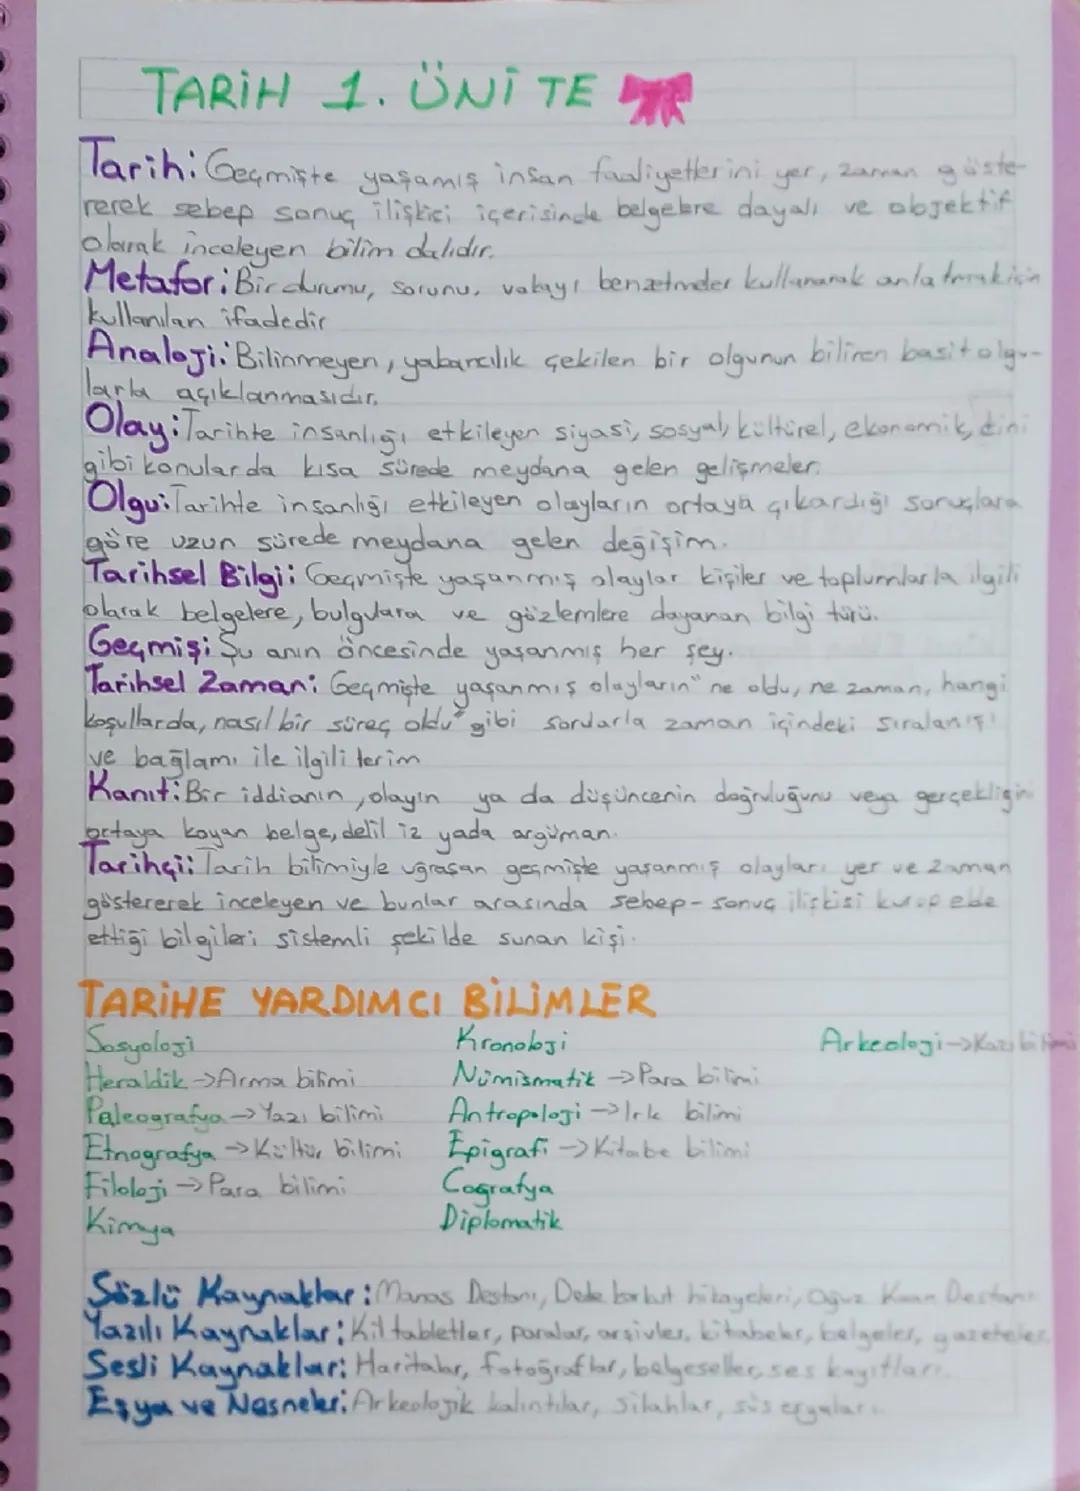 TARİH 1. ÜNİTE
Tarih: Geçmişte yaşamış insan faaliyetlerini yer, zaman göste-
rerek sebep sonuç ilişkisi içerisinde belgelere dayalı ve objektif
olarak inceleyen bilim dalıdır.
Metafor: Bir durumu, sorunu, vakayı benzetmeler kullanarak anlatmak için
kullanılan ifadedir
Analoji: Bilinmeyen, yabancılık çekilen bir olgunun bilinen basit olgu-
larla açıklanmasıdır.
Olay: Tarihte insanlığı etkileyen siyasi, sosyal, kültürel, ekonomik, dini
gibi konularda kısa sürede meydana gelen gelişmeler.
Olgu: Tarihte insanlığı etkileyen olayların ortaya çıkardığı sonuçlara
göre uzun sürede meydana gelen değişim.
Tarihsel Bilgi: Geçmişte yaşanmış olaylar kişiler ve toplumlarla ilgili
olarak belgelere, bulgulara ve gözlemlere dayanan bilgi türü.
Geçmiş: Şu anın öncesinde yaşanmış her şey.
Tarihsel Zaman: Geçmişte yaşanmış olayların "ne oldu, ne zaman, hangi
koşullarda, nasıl bir süreç oldu" gibi sorularla zaman içindeki sıralanışı
ve bağlamı ile ilgili terim
Kanıt: Bir iddianın, olayın ya da düşüncenin doğruluğunu veya gerçekliğini
ortaya koyan belge, delil iz yada argüman.
Tarihçi: Tarih bilimiyle uğraşan geçmişte yaşanmış olayları yer ve zaman
göstererek inceleyen ve bunlar arasında sebep-sonuç ilişkisi kurup elde
ettiği bilgileri sistemli şekilde sunan kişi.
TARİHE YARDIMCI BİLİMLER
Sosyoloji Kronoloji Arkeoloji→Kazı bilimi
Heraldik→Arma bilimi Nümismatik→Para bilimi
Paleografya→Yazı bilimi Antropoloji→Irk bilimi
Etnografya→Kültür bilimi Epigrafi→Kitabe bilimi
Filoloji→Para bilimi Cografya
Kimya Diplomatik
Sözlü Kaynaklar: Manas Destanı, Dede korkut hikayeleri, Oğuz Kaan Destanı
Yazılı Kaynaklar: Kil tabletler, paralar, arşivler, kitabeler, belgeler, gazeteler
Sesli Kaynaklar: Haritalar, fotoğraflar, belgeseller, ses kayıtları.
Eşya ve Nesneler: Arkeolojik kalıntılar, silahlar, süs eşyaları.